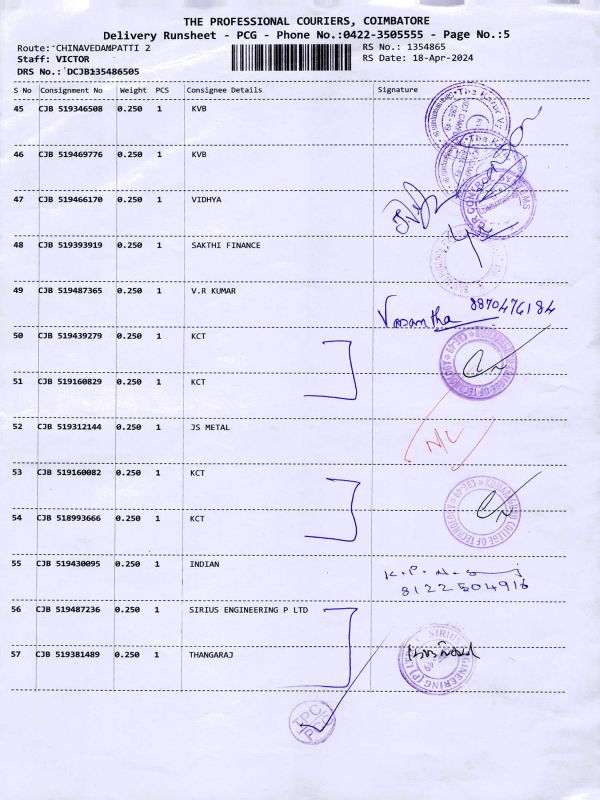 THE PROFESSIONAL COURIERS, COIMBATORE
Delivery Runsheet - PCG - Phone No.:0422-3505555 - Page No.:5
Route: CHINAVEDAMPATTI 2 RS No.: 1354865
Staff: VICTOR RS Date: 18-Apr-2024
DRS No.: DCJB135486505
S No Consignment No Weight PCS Consignee Details Signature
45 CJB 519346508 0.250 1 KVB
46 CJB 519469776 0.250 1 KVB
47 CJB 519466170 0.250 1 VIDHYA
48 CJB 519393919 0.250 1 SAKTHI FINANCE
49 CJB 519487365 0.250 1 V.R KUMAR
Vasantha 8870476184
50 CJB 519439279 0.250 1 KCT
51 CJB 519160829 0.250 1 KCT
52 CJB 519312144 0.250 1 JS METAL
N/C
53 CJB 519160082 0.250 1 KCT
54 CJB 518993666 0.250 1 KCT
55 CJB 519430095 0.250 1 INDIAN
8122504916
56 CJB 519487236 0.250 1 SIRIUS ENGINEERING P LTD
57 CJB 519381489 0.250 1 THANGARAJ